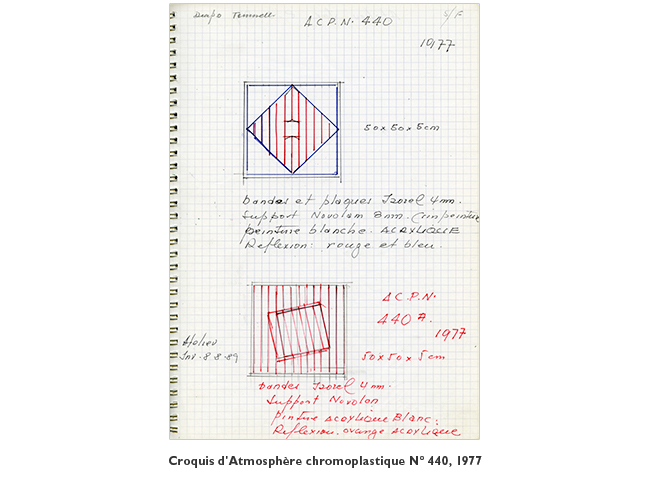 Diapo
A C P. N. 440
S/F
1977
50 x 50 x 5 cm
bandes et plaques Isorel 4 mm.
Support Novolam 8mm.
peinture blanche. ACRYLIQUE
Reflexion: rouge et bleu.
A C. P. N.
440 A.
1977
Atelier
Inv. 8-8-89
50 x 50 x 5 cm
bandes Isorel 4 mm.
Support Novolan
pinture acrylique Blanc.
Reflexion. orange acrylique
Croquis d'Atmosphère chromoplastique N° 440, 1977